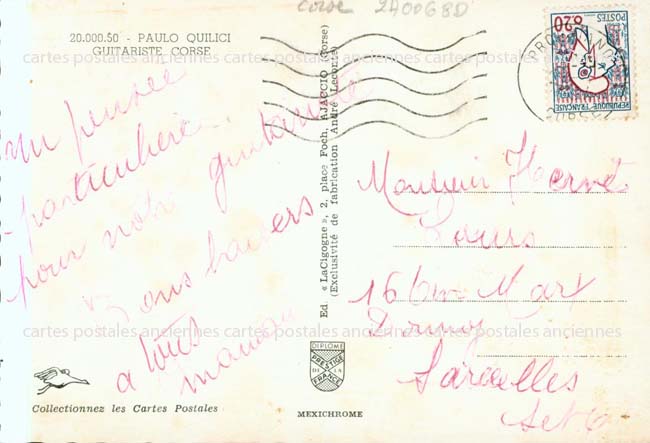 Corse 2A006BD
20.000.50 - PAULO QUILICI
GUITARISTE CORSE
un pensée
particulière
pour notre guitariste
Bons baisers
a tous
maman
Ed. « LaCigogne », 2, place Foch, AJACCIO (Corse)
(Exclusivité de fabrication André Leconte)
0,20
POSTES
RÉPUBLIQUE FRANÇAISE
Monsieur
16 bis
Dormoy
Sarcelles
S et O
cartes postales anciennes cartes postales anciennes cartes postales anciennes
cartes postales anciennes cartes postales anciennes cartes postales anciennes
DIPLOME
PRESTIGE
DE LA
FRANCE
Collectionnez les Cartes Postales
MEXICHROME